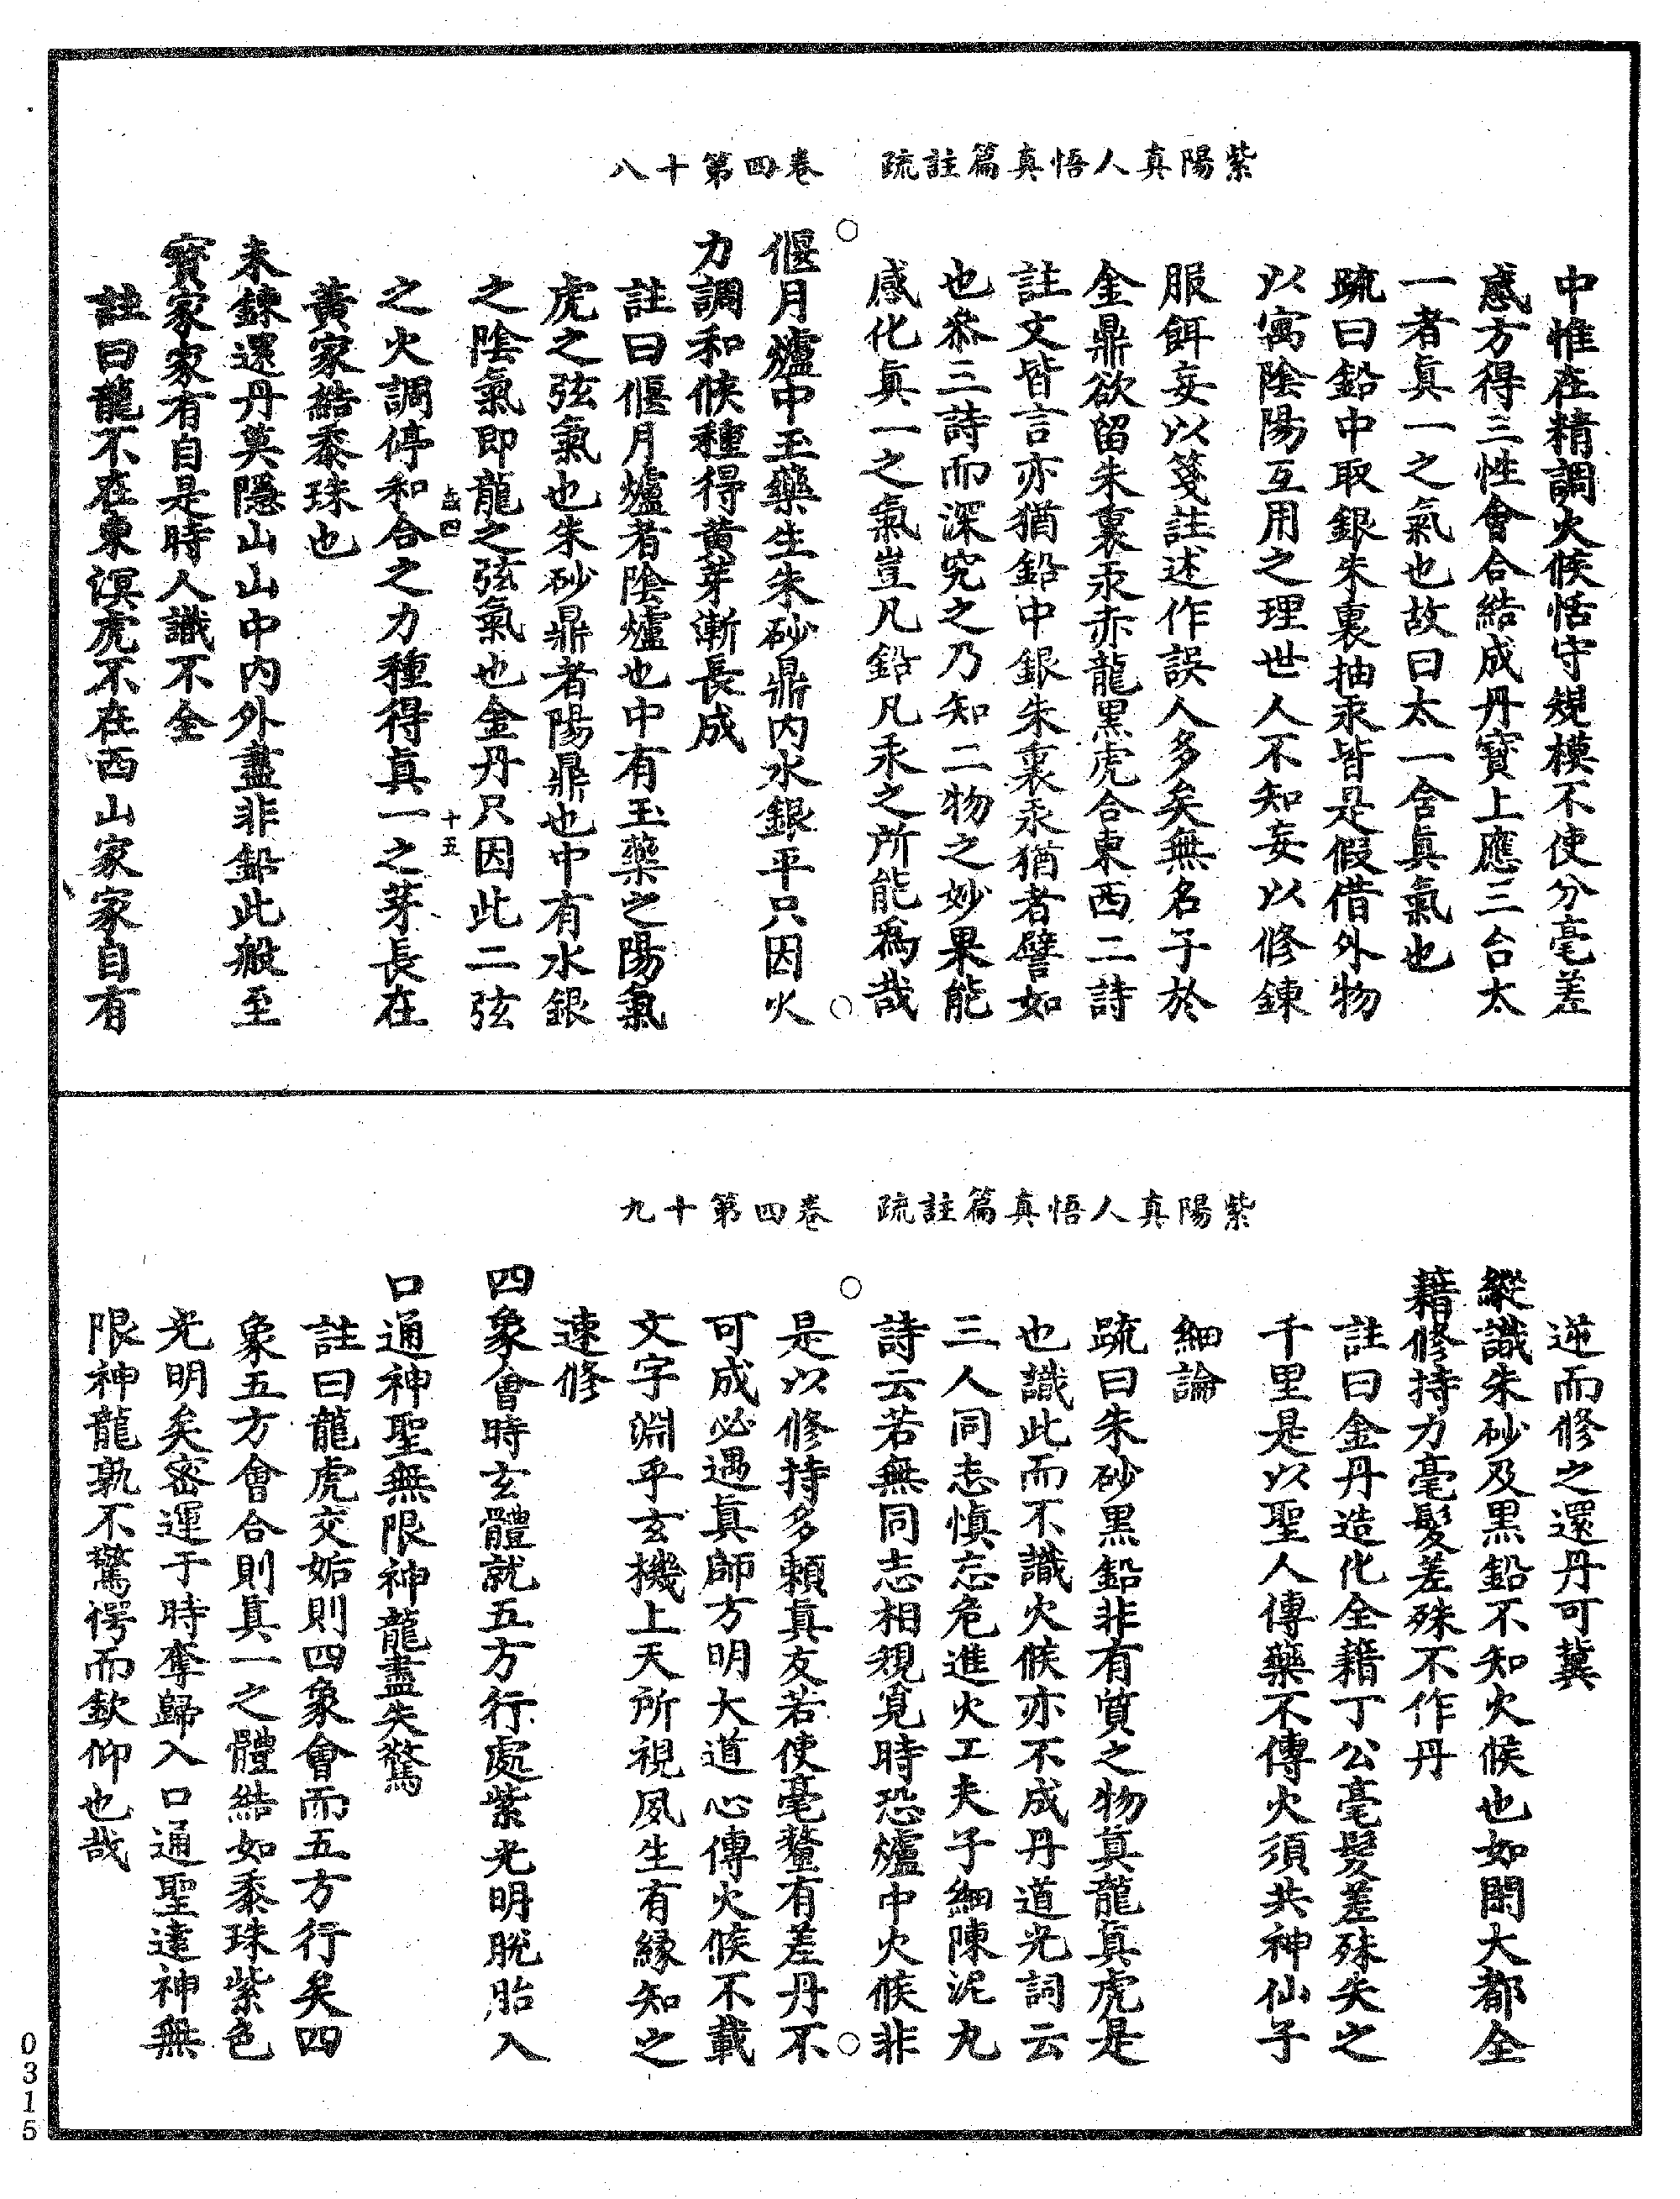 紫陽真人悟真篇註疏　卷四第十八
中惟在精調火候恬守規模不使分毫差
感方得三性會合結成丹寶上應三台太
一者眞一之氣也故曰太一含眞氣也
疏曰鉛中取銀朱裏抽汞皆是假借外物
以寓陰陽互用之理世人不知妄以修鍊
服餌妄以箋註述作誤人多矣無名子於
金鼎欲留朱裏汞赤龍黑虎合東西二詩
註文皆言亦猶鉛中銀朱裏汞猶者譬如
也叅三詩而深究之乃知二物之妙果能
感化眞一之氣豈凡鉛凡汞之所能爲哉
偃月爐中玉藥生朱砂鼎內水銀平只因火
力調和候種得黄芽漸長成
註曰偃月爐者陰爐也中有玉藥之陽氣
虎之弦氣也朱砂鼎者陽鼎也中有水銀
之陰氣即龍之弦氣也金丹只因此二弦
十五
之火調停和合之力種得真一之芽長在
黃家結黍珠也
未鍊還丹莫隱山山中内外盡非鉛此般至
寳家家有自是時人識不全
註曰龍不在東溟虎不在西山家家自有
紫陽真人悟真篇註疏　卷四第十九
逆而修之還丹可冀
縱識朱砂及黑鉛不知火候也如閑大都全
藉修持力毫髮差殊不作丹
註曰金丹造化全藉丁公毫髮差殊失之
千里是以聖人傳藥不傳火須共神仙子
細論
疏曰朱砂黑鉛非有質之物真龍真虎是
也識此而不識火候亦不成丹道光詞云
三人同志愼忘危進火工夫子細陳泥九
詩云若無同志相覌覓時恐爐中火候非
是以修持多賴真友若使毫釐有差丹不
可成必遇真師方明大道心傳火候不載
文字淵乎玄機上天所視夙生有緣知之
速修
四象會時玄體就五方行處紫光明脫胎入
口通神聖無限神龍盡失驚
註曰龍虎交姤則四象會而五方行矣四
象五方會合則真一之體結如黍珠紫色
光明矣密運于時奪歸入口通聖達神無
限神龍孰不驚愕而欽仰也哉
0315